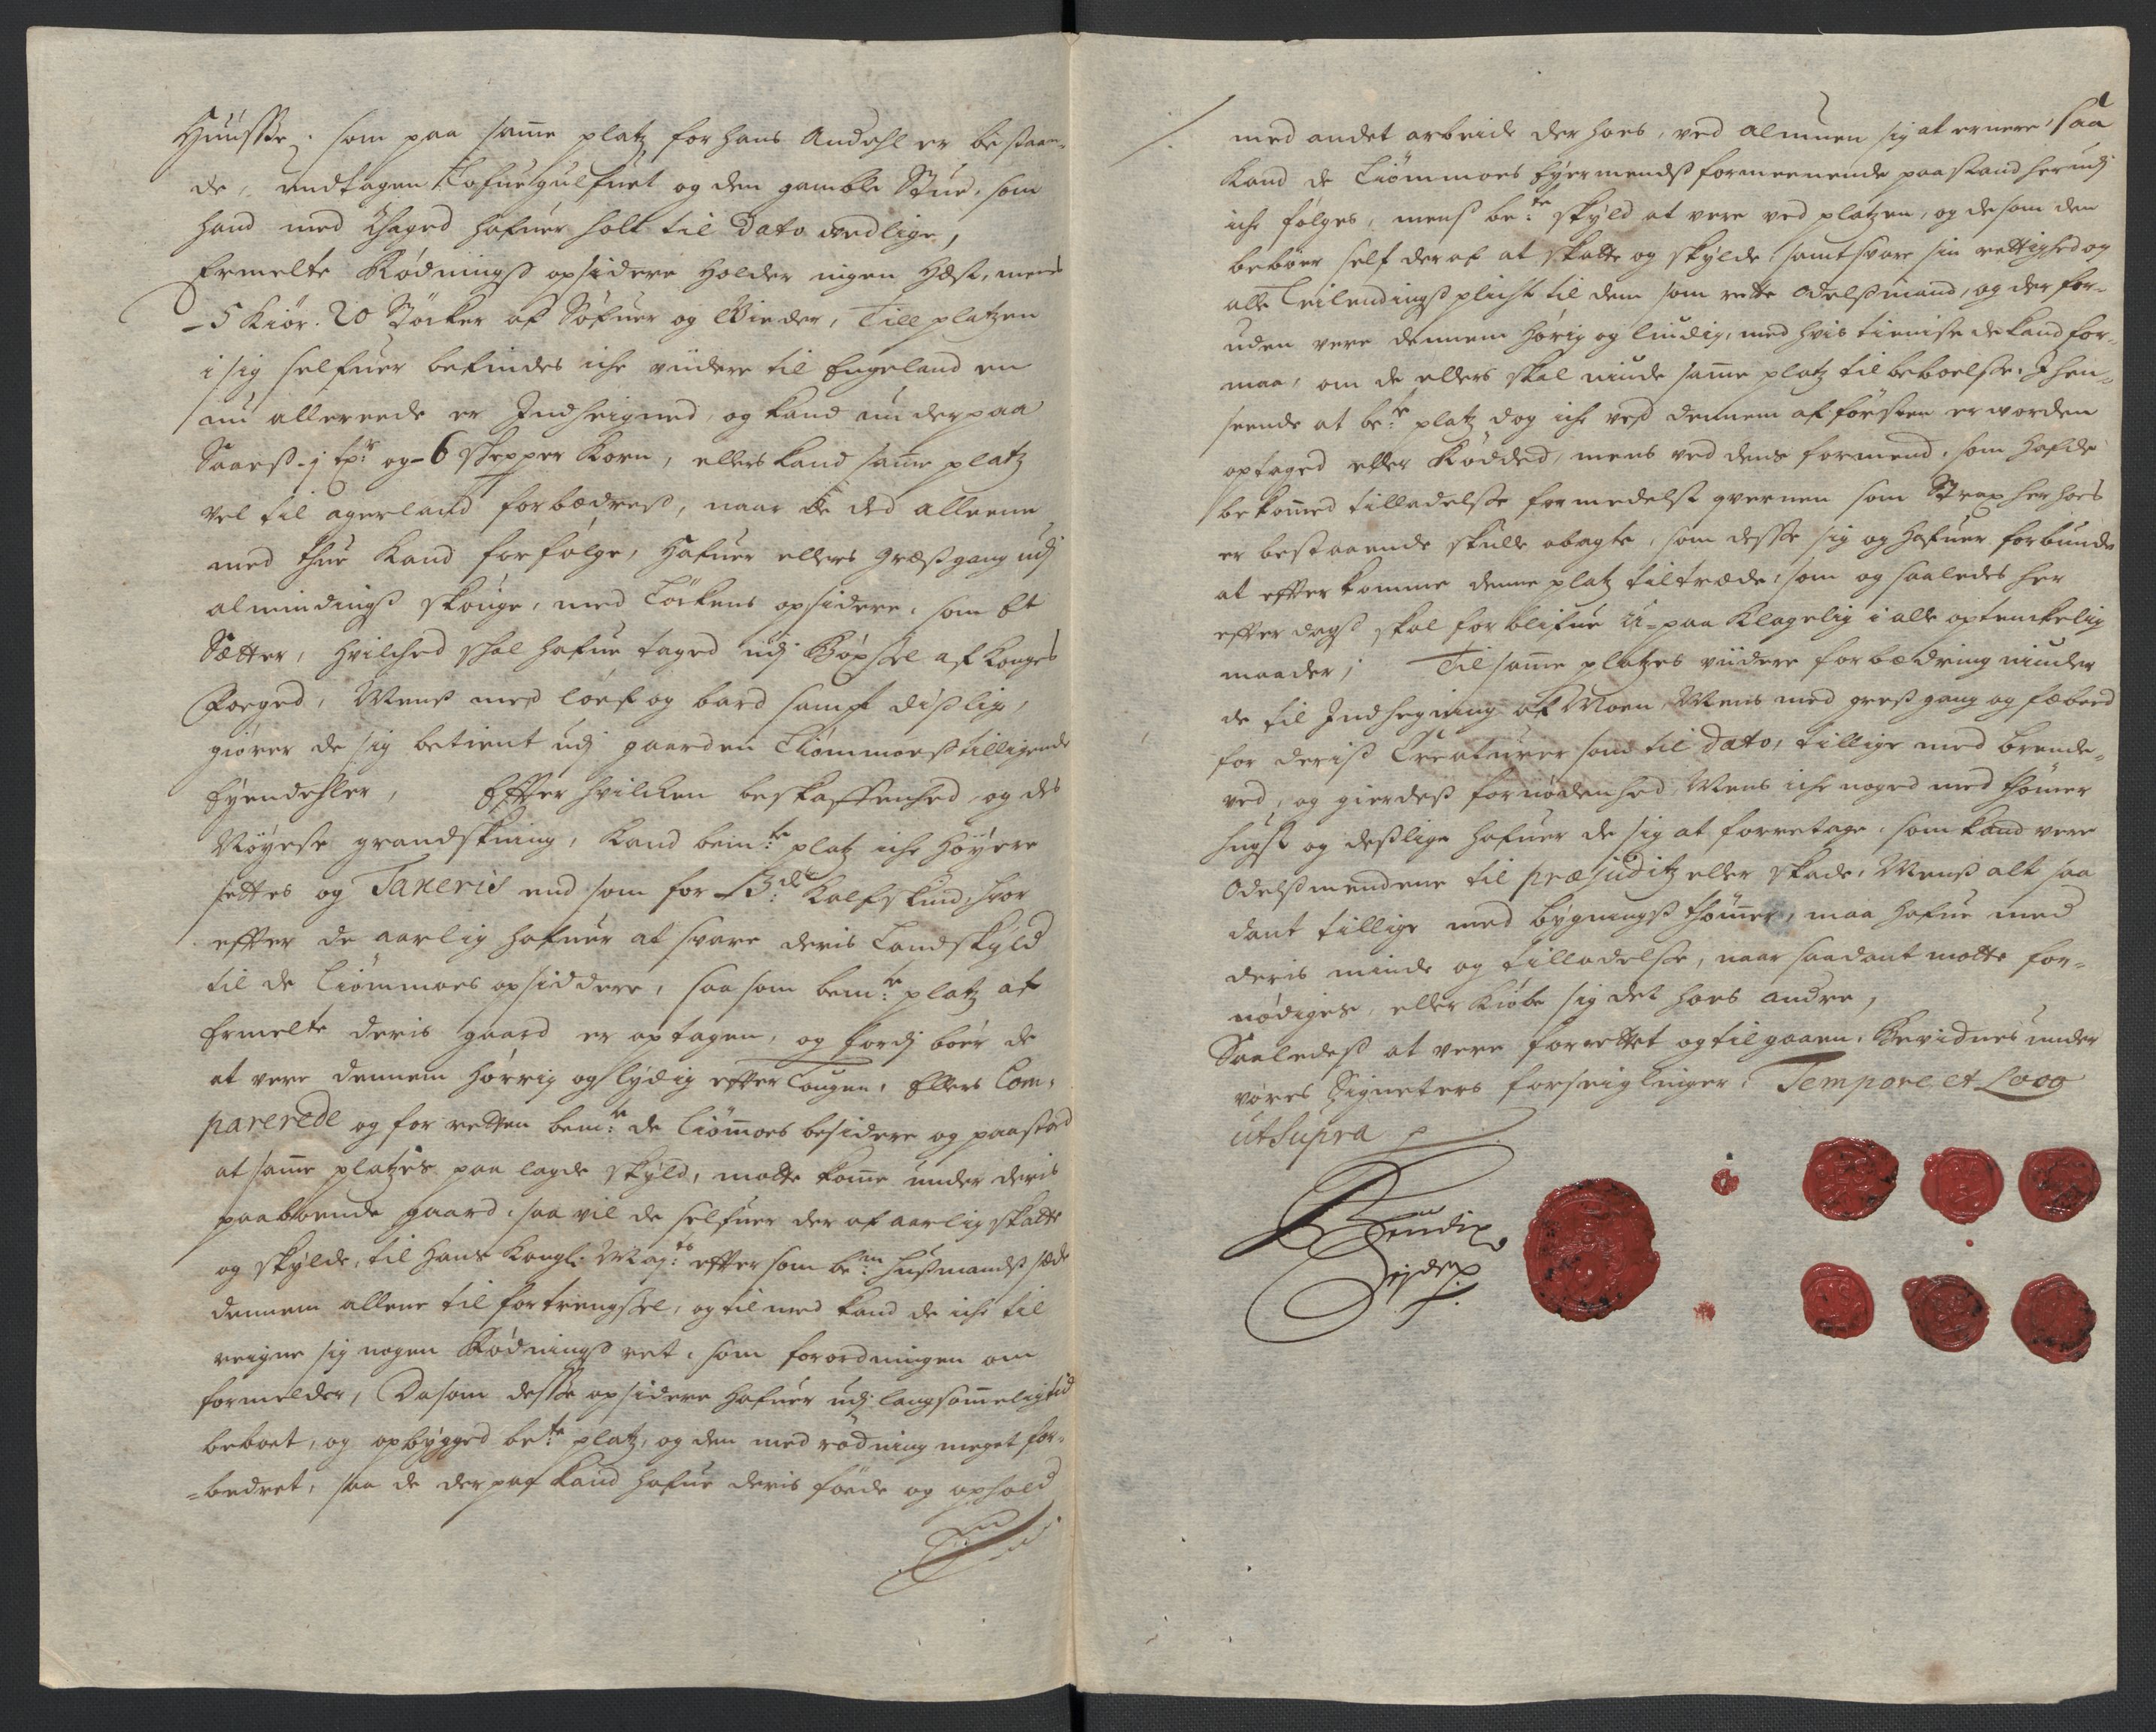 Huusße, som paa same platz for hans Andahl er bestaaen-
de, undtagen Lofuegulfuet og den gamble Stue, som
hand med Thaged hafuer holt til Dato vedlige,
Ermelte Rødningß opsidere holder ingen Hæst, mens
- 5 Kiør. 20 Støcker af Søfuer og Bieder, Till platzen
i sig selfuer befindes iche viidere til Engeland en
nu allereede er Indheigned, og kand nu der paa
Saaeß - j tr og - 6 skepper Korn, ellers kand same platz
vel til agerland forbædreß, naar de ded alleene
med thiie kand forfølge, Hafuer ellers græßgang udj
almindingß skouge, med Løckens opsidere, som Et
Sætter, hvilched skal hafue taged udj Bøxsel af Konges
Foeged, Menß med løef og bard sampt dißlige,
giører de sig betient udj gaarden Tiømmoeß tilligende
Eyendehler, Effter hvilchen beskaffenhed, og des
Nøyeste grandskning, kand bemte platz iche høyere
settes og Taxeris end som for 1 3de Kalfskind, hvor
effter de aarlig hafuer at svare deris Landskyld
til de Tiømmoes opsiddere, saa som bemte platz af
Ermelte deris gaard er optagen, og fordj bør de
at vere dennem hørrig og lydig effter Lougen, Ellers Com-
parerede og for retten bemte de Tiømoes besidere og paastod
at same platzes paa lagde skyld, motte kome under deris
paaboende gaard, saa vil de selfuer der af aarlig skatte
og skylde, til Hans Kongl: Mayts effter som bemte hußmandß sæde
dennem allene til fortrengsel, og til med kand de iche til
reigne sig nogen Rødningß ret, som forordningen om
formelder, Da som desße opsidere hafuer udj langsomelig tid
beboet, og opbygged bete platz, og den med rødning meget for-
=bedret, saa de der paa kand hafue deris føede og ophold
med andet arbeide der hoes, ved almuen sig at ernere, saa
kand de Tiømmoes Eyermendß formeenende paastand herudj
iche følges, menß bete skyld at vere ved platzen, og de som den
beboer self der af at skatte og skylde, samt svare sin rettighed og
alle Leilendingß plicht til dem som rette odelßmænd, og der for-
uden vere dennem hørig og lyudig, med hvis tieniste de kand for-
maa, om de ellers skal niude same platz til beboelse. I hen-
seende at bete platz dog iche ved dennem af første er worden
optaged eller Rødded, mens ved dens formend, som hafde
bekomed tilladelse formedelst qvernen som Strax her hoes
er bestaaende skulle obagte, som desße sig og hafuer forbunden
at effterkomme denne platz tiltræde, som og saaledes her
effter dags skal forblifue u-paa klagelig i alle optenckelig
maader, Til same platzes viidere forbædring niuder
de til Indhegning af Moen, Mens med gresgang og febeed
for deriß Creaturer som til Dato, tillige med brende-
ved, og gierdeß fornødenhed, Mens iche noged med thømer
hugst og deßlige hafuer de sig at forretage, som kand vere
Odelßmendene til præjuditz eller skade, Menß alt saa
dant tillige med bygningß thømer, maa hafue med
deris minde og tilladelse, naar saadant motte for-
nødiges, eller kiøbe sig det hoes andre,
Saaledeß at vere forrettet og tilgaaen, Bevidnes under
vores Signeters forseiglinger. Tempore et Loco
ut Supra
Bendix